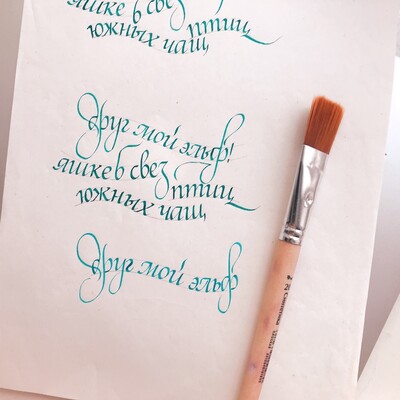 яшке б свез птиц
южных чащ
Друг мой эльф!
яшке б свез птиц
южных чащ
Друг мой эльф